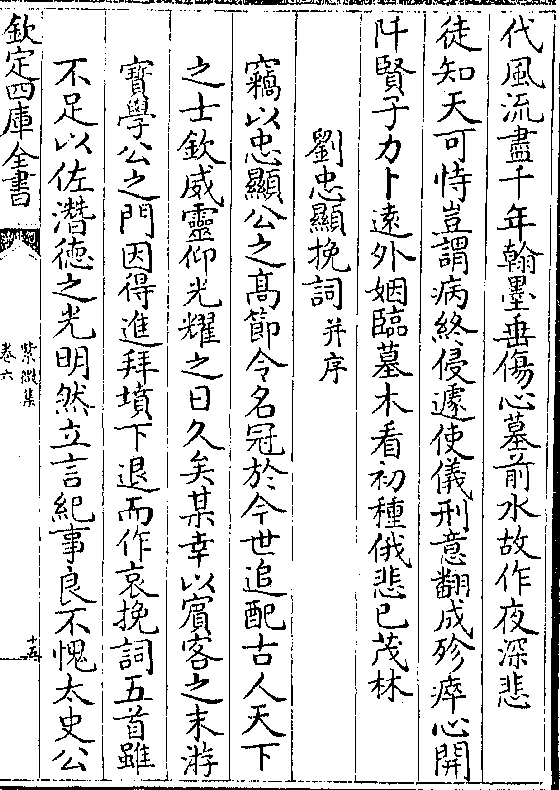 代風流盡千年翰墨垂傷心墓前水故作夜深悲
徒知天可恃豈謂病終侵遽使儀刑意翻成殄瘁心開
阡賢子力卜遠外姻臨墓木看初種俄悲已茂林
劉忠顯挽詞并序
竊以忠顯公之髙節令名冠於今世追配古人天下
之士欽威靈仰光耀之日久矣某幸以賓客之末游
寳學公之門因得進拜墳下退而作哀挽詞五首雖
不足以佐潛徳之光明然立言紀事良不愧太史公
欽定四庫全書
紫微集
卷六
十五